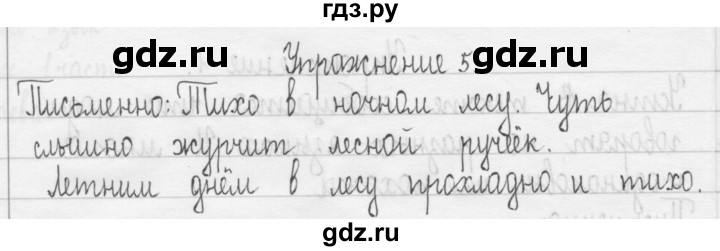 гдз.ру
gdz.ru gdz.ru
Упражнение 5
Письменно: Тихо в ночном лесу. Чуть
слышно журчит лесной ручеёк.
gdz.ru gdz.ru
Летним днём в лесу прохладно и тихо.
gdz.ru gdz.ru